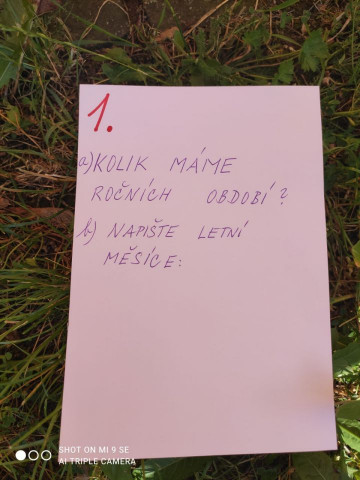 1.
a) KOLIK MÁME
ROČNÍCH OBDOBÍ?
b) NAPIŠTE LETNÍ
MĚSÍCE:
SHOT ON MI 9 SE
AI TRIPLE CAMERA